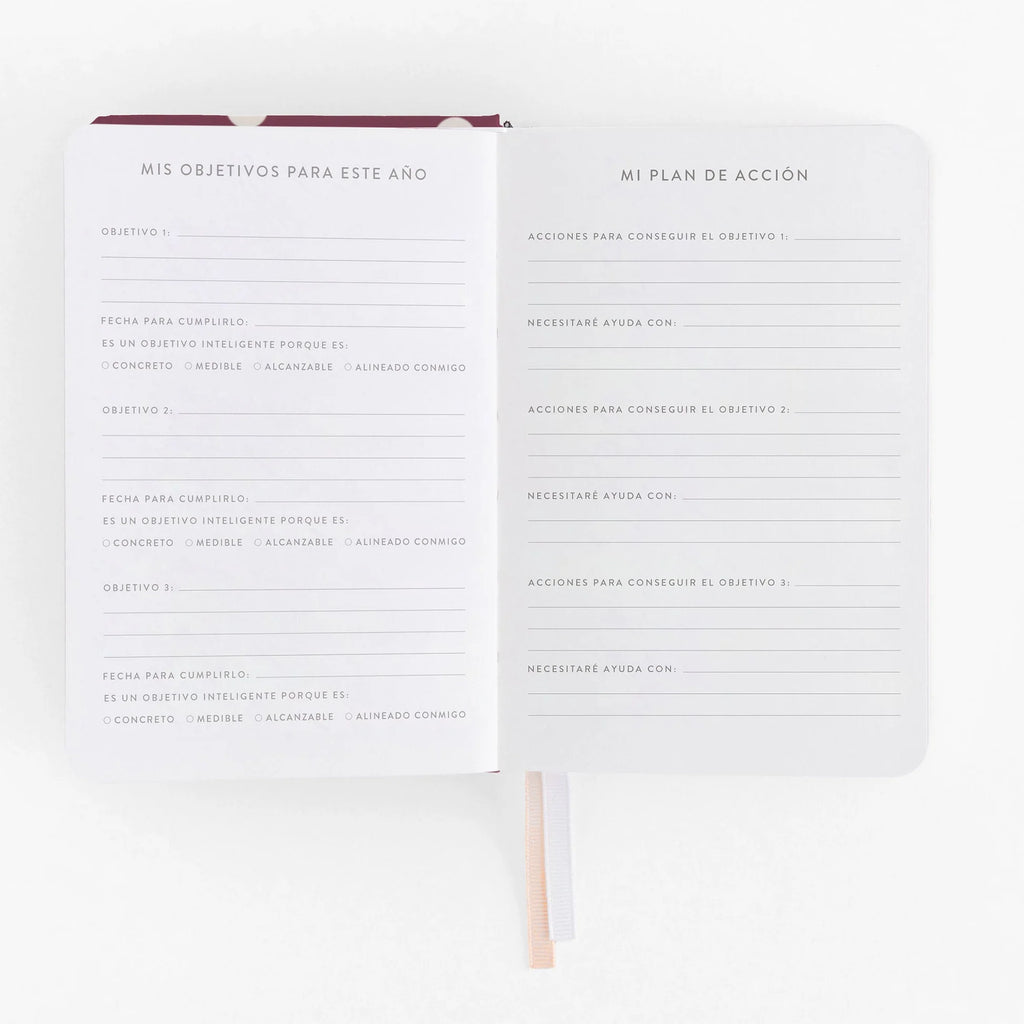 MIS OBJETIVOS PARA ESTE AÑO
OBJETIVO 1:
FECHA PARA CUMPLIRLO:
ES UN OBJETIVO INTELIGENTE PORQUE ES:
CONCRETO MEDIBLE ALCANZABLE ALINEADO CONMIGO
OBJETIVO 2:
FECHA PARA CUMPLIRLO:
ES UN OBJETIVO INTELIGENTE PORQUE ES:
CONCRETO MEDIBLE ALCANZABLE ALINEADO CONMIGO
OBJETIVO 3:
FECHA PARA CUMPLIRLO:
ES UN OBJETIVO INTELIGENTE PORQUE ES:
CONCRETO MEDIBLE ALCANZABLE ALINEADO CONMIGO
MI PLAN DE ACCIÓN
ACCIONES PARA CONSEGUIR EL OBJETIVO 1:
NECESITARÉ AYUDA CON:
ACCIONES PARA CONSEGUIR EL OBJETIVO 2:
NECESITARÉ AYUDA CON:
ACCIONES PARA CONSEGUIR EL OBJETIVO 3:
NECESITARÉ AYUDA CON: